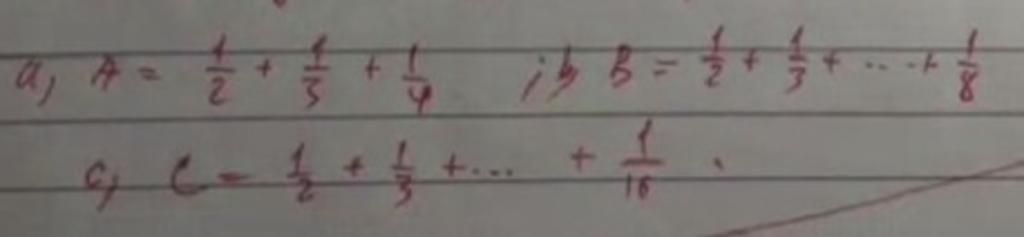 a, A = 1/2 + 1/3 + 1/4 ; b, B = 1/2 + 1/3 + ... + 1/8
c, C = 1/2 + 1/3 + ... + 1/16 .